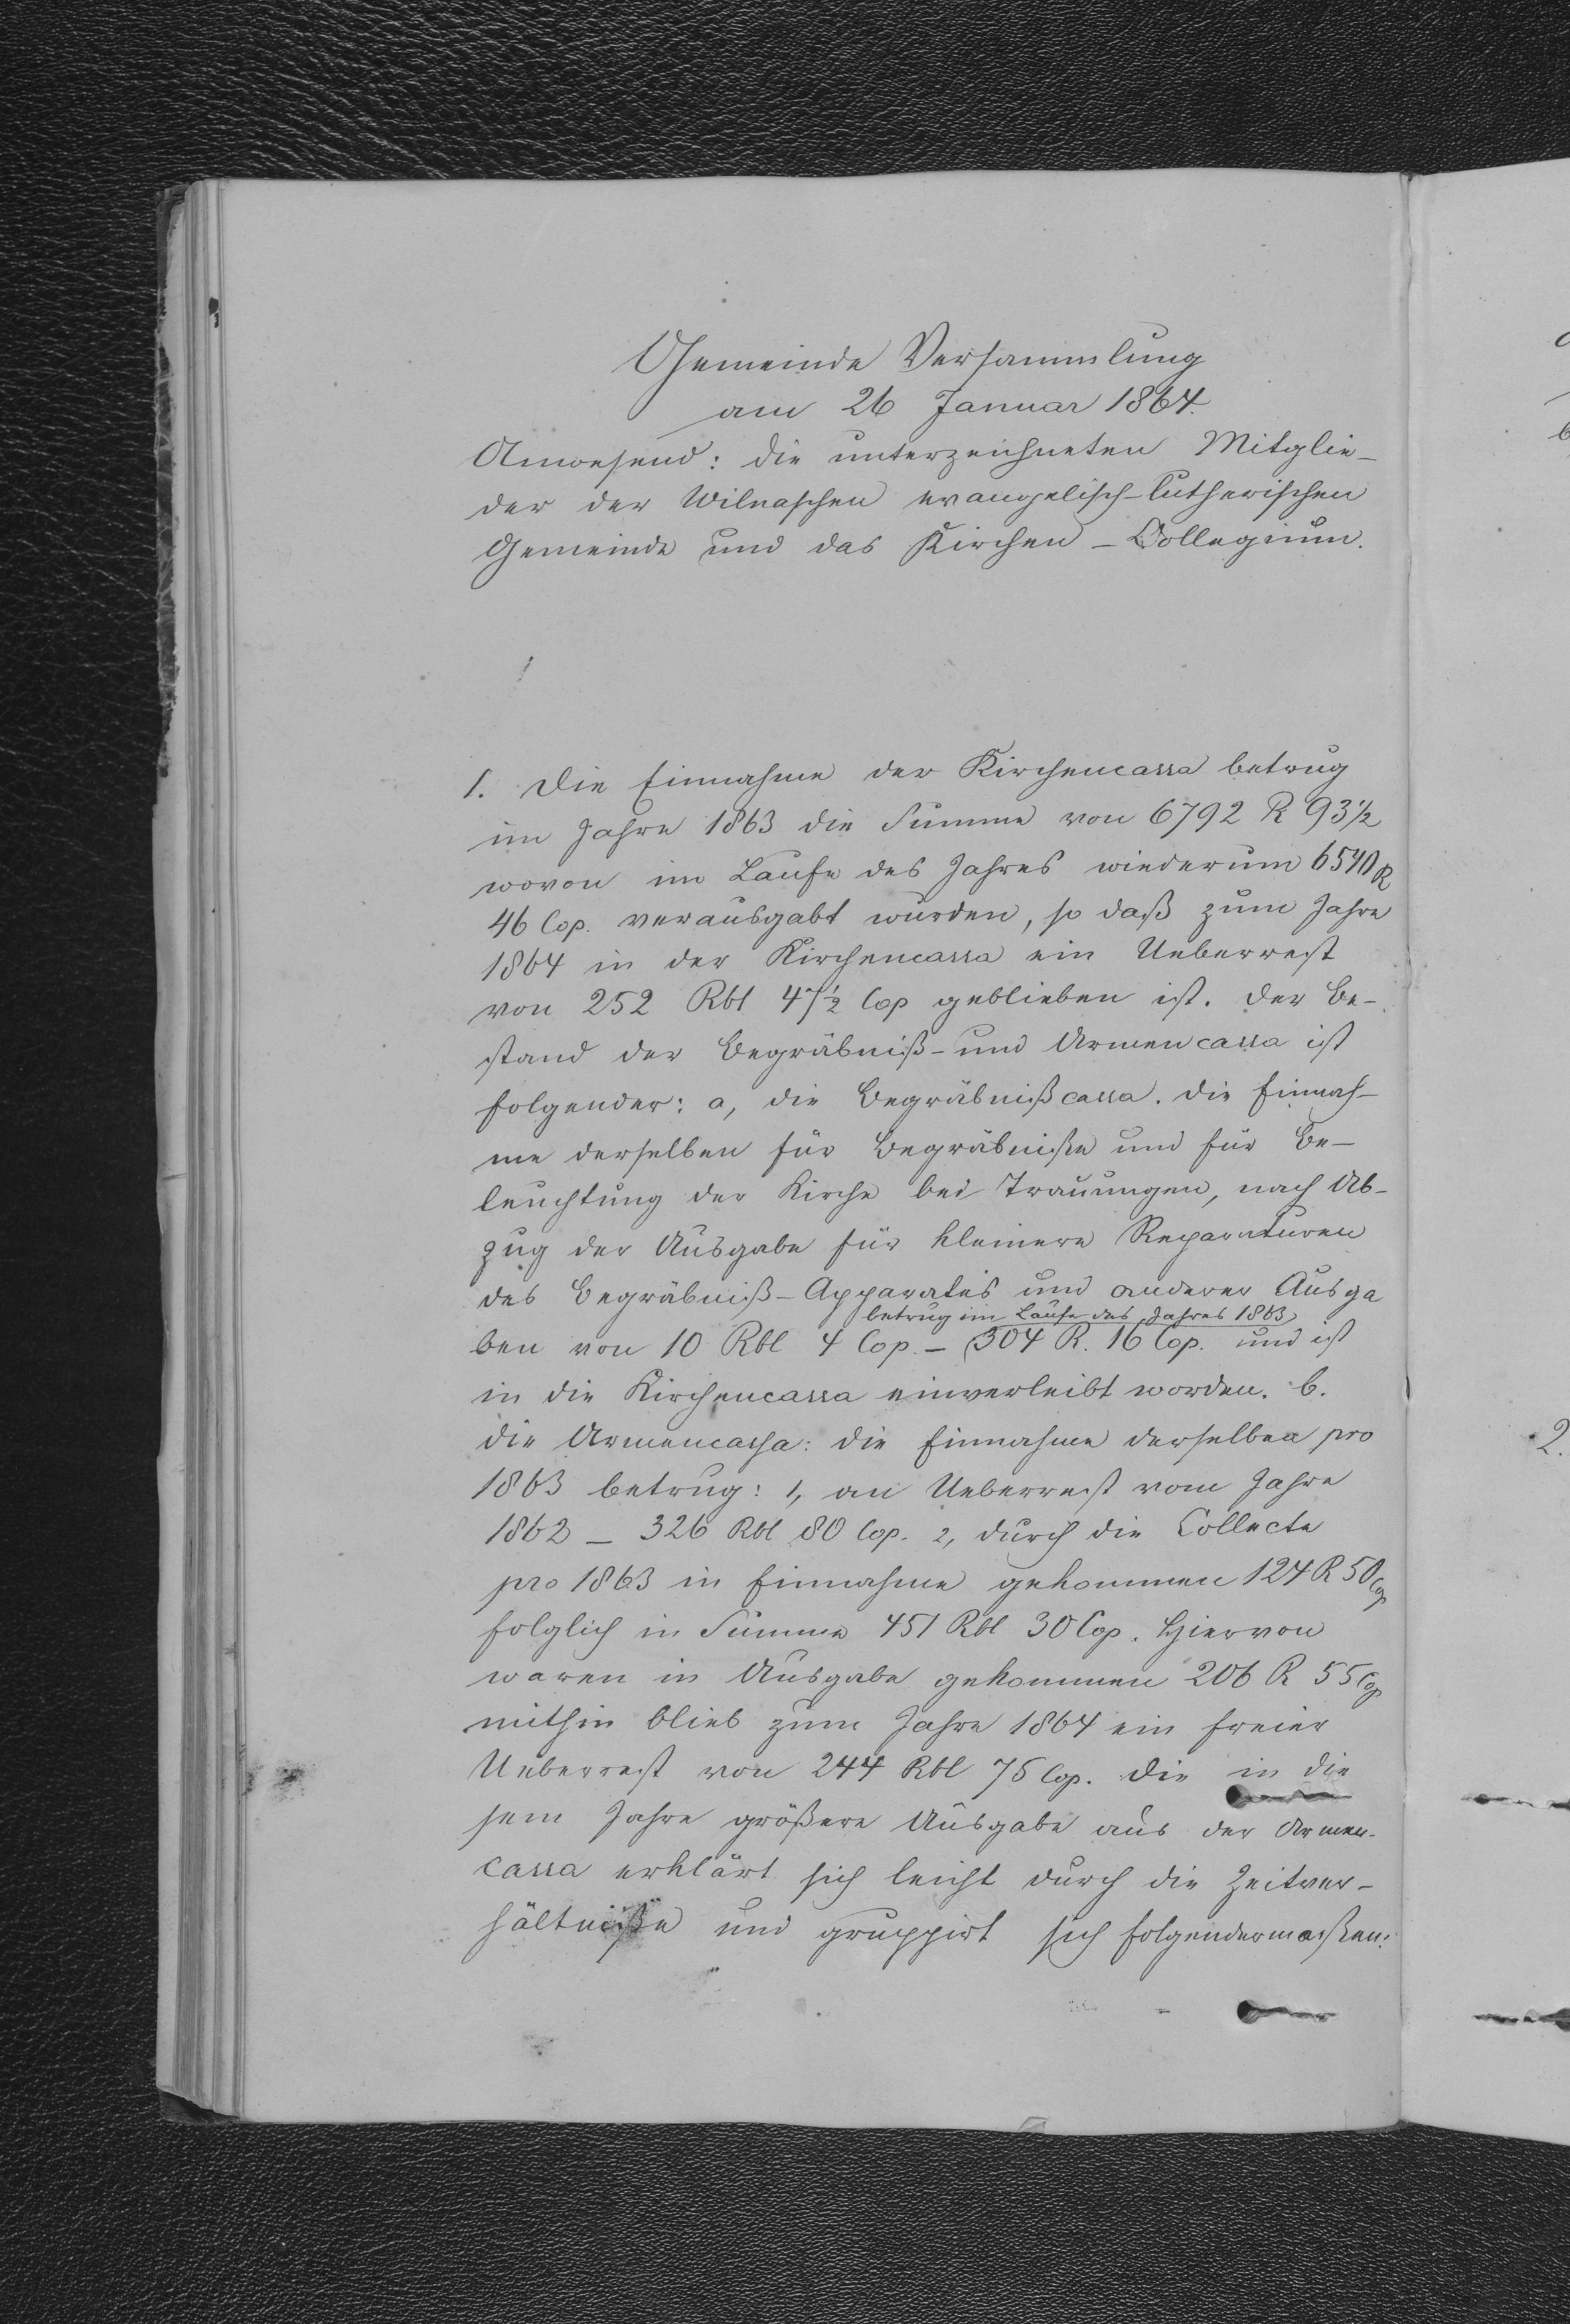 Gemeinde Versammlung
am 26 Januar 1864.
Anwesend: die unterzeichneten Mitglie-
der der Wilnaschen evangelisch-lutherischen
Gemeinde und das Kirchen-Collegium.
1. Die Einnahme der Kirchencassa betrug
im Jahre 1863 die Summe von 6792 R 93 1/2
wovon im Laufe des Jahres wiederum 6540 R
46 Cop. verausgabt wurden, so daß zum Jahre
1864 in der Kirchencassa ein Ueberrest
von 252 Rbl 47 1/2 Cop geblieben ist. Der Be-
stand der Begräbniß- und Armencassa ist
folgender: a, die Begräbnißcassa. Die Einnah-
me derselben für Begräbniße und für Be-
leuchtung der Kirche bei Trauungen, nach Ab-
zug der Ausgabe für kleinere Reparaturen
des Begräbniß-Apparates und anderer Ausga
betrug im Laufe des Jahres 1863
ben von 10 Rbl 4 Cop. - 304 R. 16 Cop. und ist
in die Kirchencassa einverleibt worden. b.
die Armencassa: die Einnahme derselben pro
1863 betrug: 1, an Ueberrest vom Jahre
1862 - 326 Rbl 80 Cop. 2, durch die Collecte
pro 1863 in Einnahme gekommen 124 R 50 Cop
folglich in Summa 451 Rbl 30 Cop. Hiervon
waren in Ausgabe gekommen 206 R 55 Cop
mithin blieb zum Jahre 1864 ein freier
Ueberrest von 244 Rbl 75 Cop. Die in die
sem Jahre größere Ausgabe aus der Armen-
cassa erklärt sich leicht durch die Zeitver-
hältniße und gruppirt sich folgendermaßen:
2.